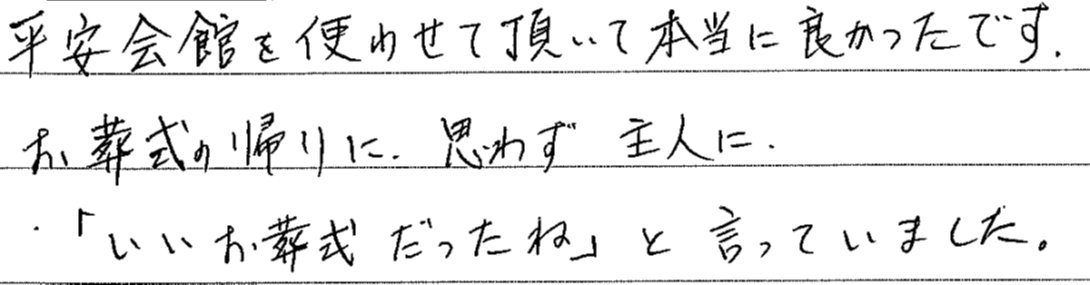 平安会館を使わせて頂いて本当に良かったです.
お葬式の帰りに、思わず 主人に、
「いいお葬式だったね」と言っていました。